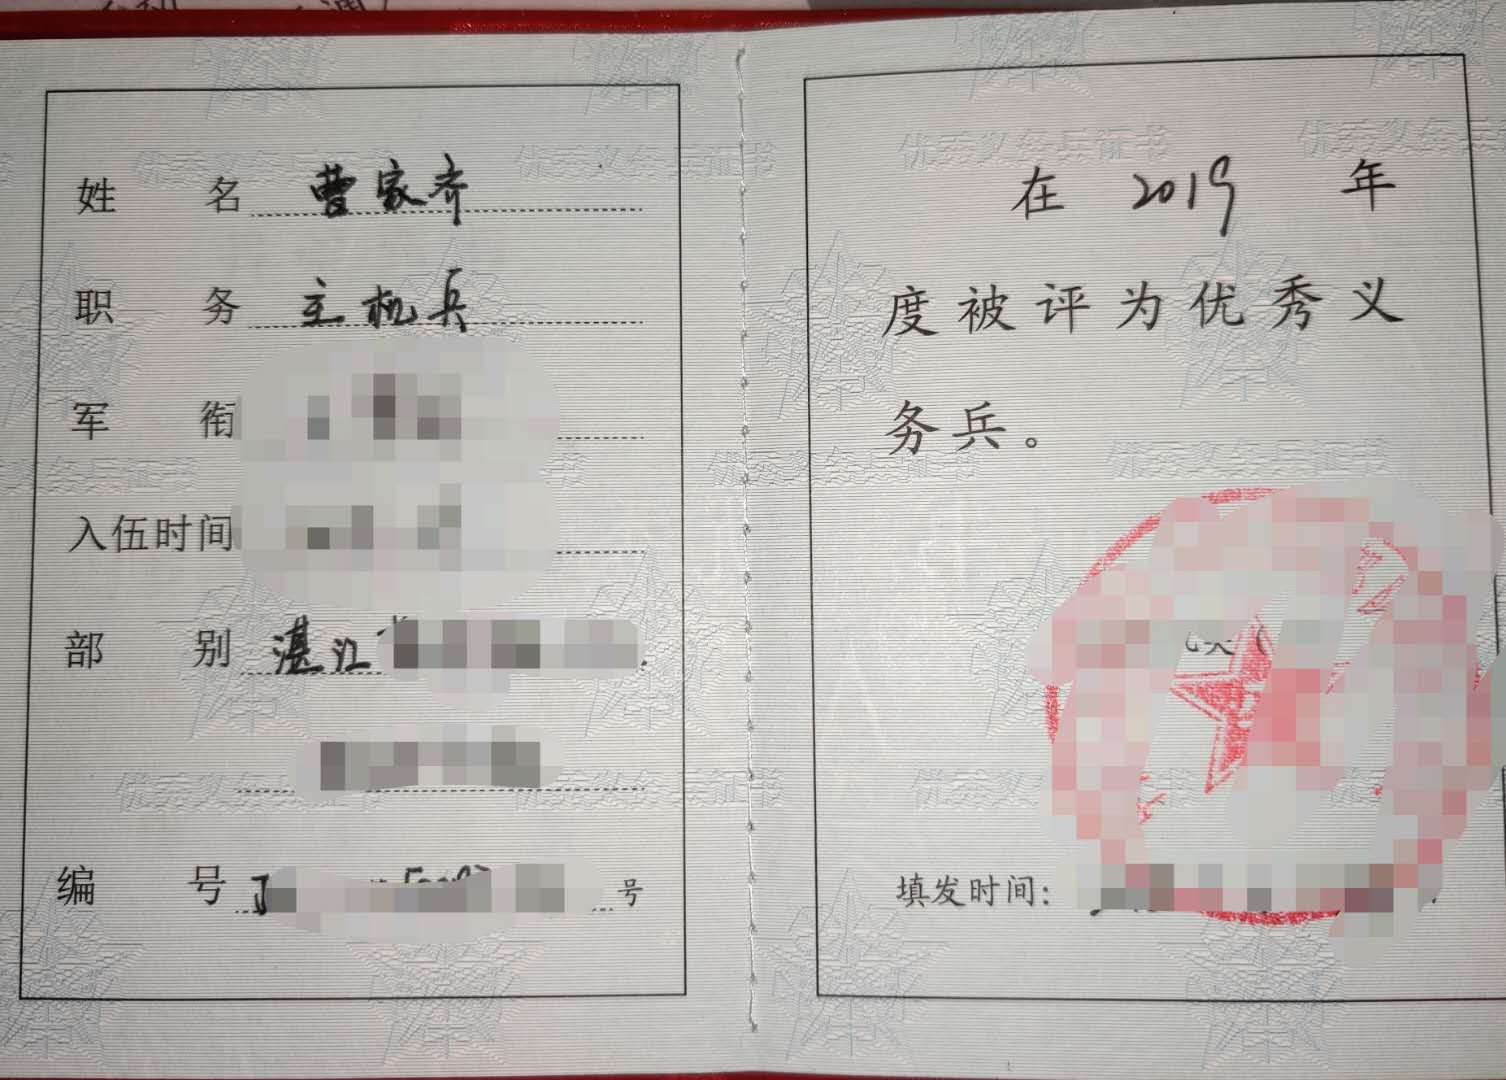 姓名 曹家齐
职务 主机兵
军衔
入伍时间
部别 湛江
编号 号
在 2019 年
度被评为优秀义
务兵。
填发时间：
优秀义务兵证书